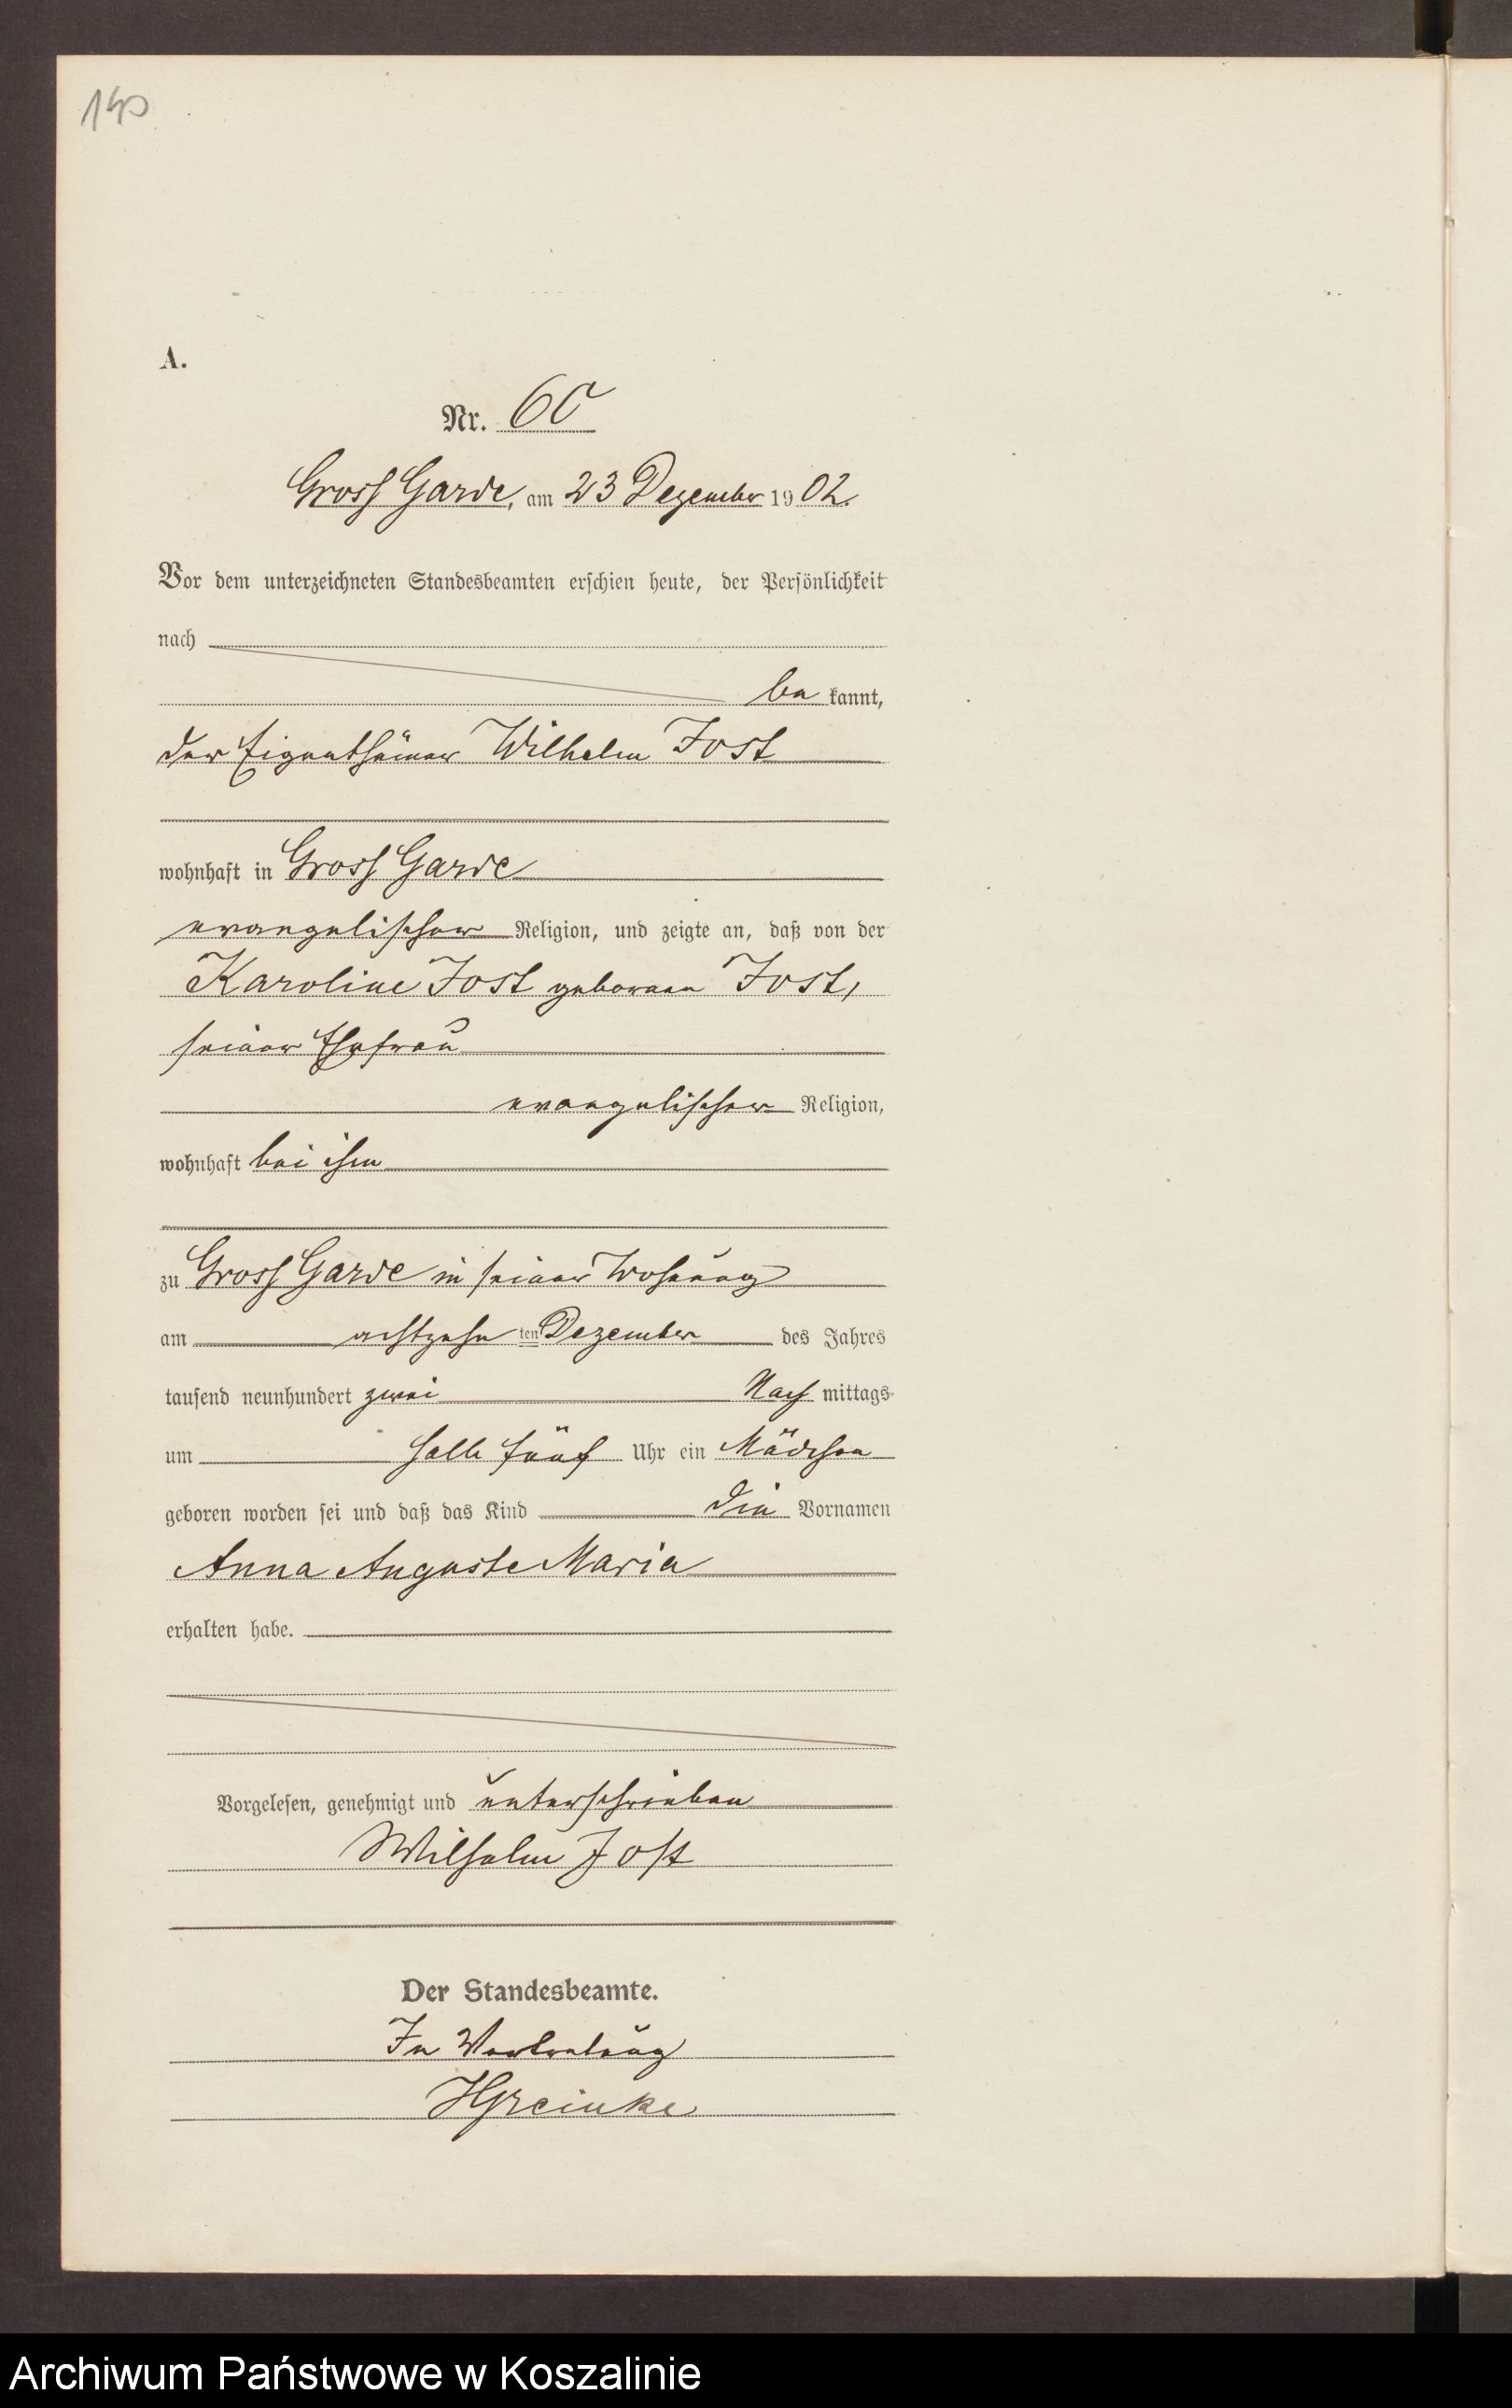 140
A.
Nr. 60
Gross Garde, am 23 Dezember 1902.
Vor dem unterzeichneten Standesbeamten erschien heute, der Persönlichkeit
nach
be kannt,
der Eigenthümer Wilhelm Jost
wohnhaft in Gross Garde
evangelischer Religion, und zeigte an, daß von der
Karoline Jost geborenen Jost,
seiner Ehefrau
evangelischer Religion,
wohnhaft bei ihm
zu Gross Garde in seiner Wohnung
am achtzehn ten Dezember des Jahres
tausend neunhundert zwei Nach mittags
um halb fünf Uhr ein Mädchen
geboren worden sei und daß das Kind die Vornamen
Anna Auguste Maria
erhalten habe.
Vorgelesen, genehmigt und unterschrieben
Wilhelm Jost
Der Standesbeamte.
In Vertretung
Archiwum Państwowe w Koszalinie